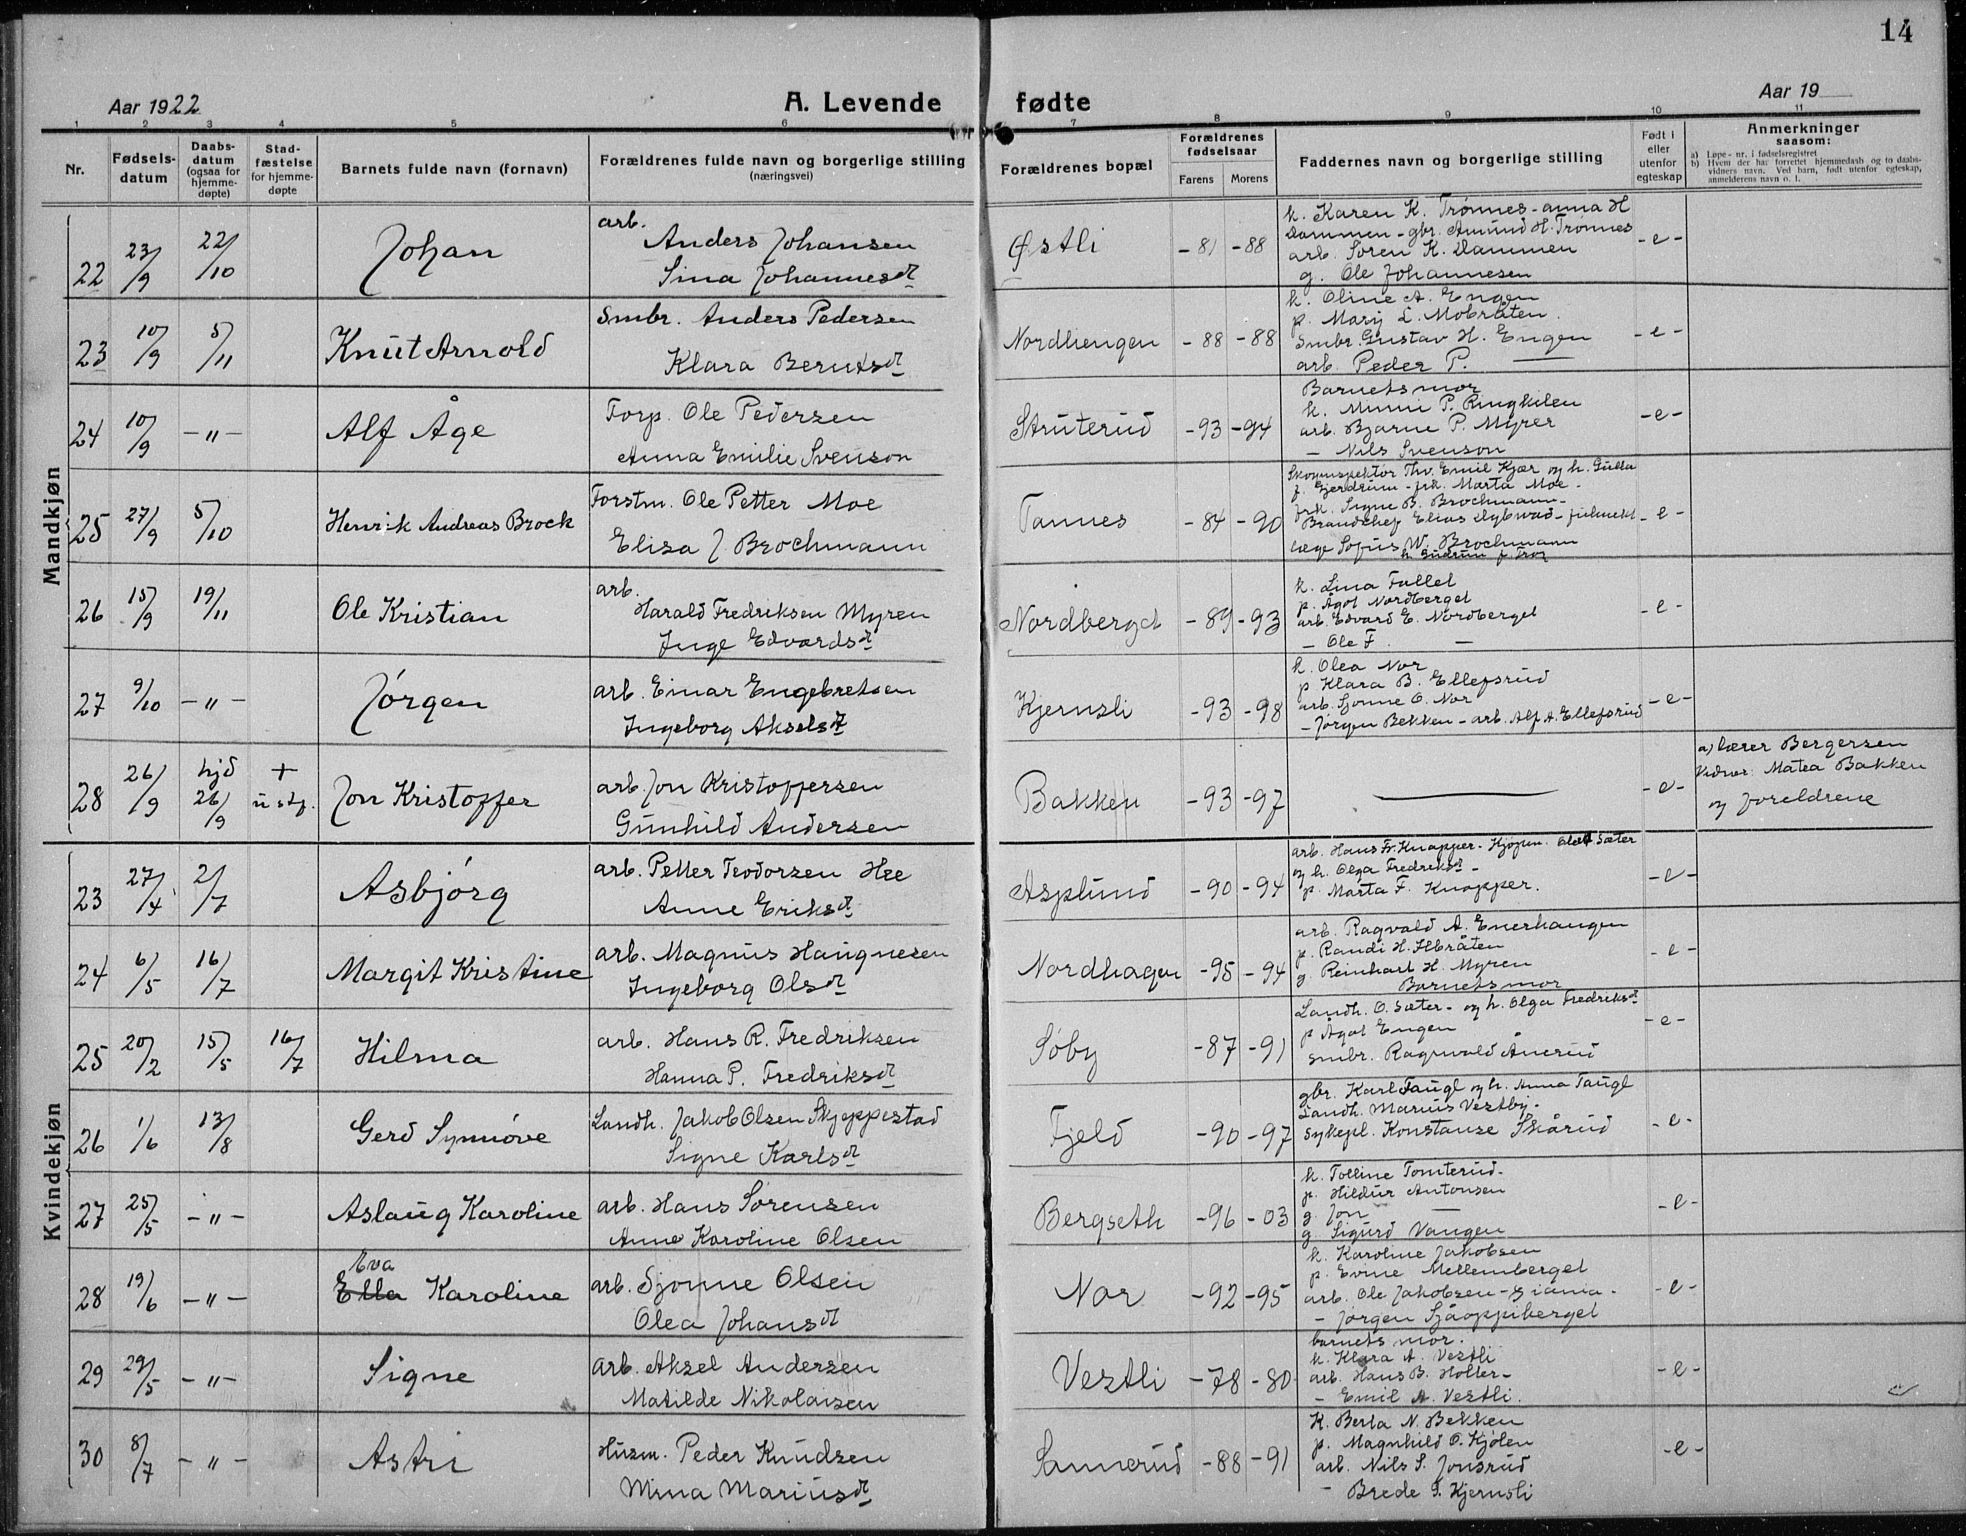 14
Aar 1922
A. Levende fødte
Aar 19
1 2 3 4 5 6 7 8 9 10 11
Nr.
Fødsels-datum
Daabs-datum (ogsaa for hjemme-døpte)
Stad-fæstelse for hjemme-døpte
Barnets fulde navn (fornavn)
Forældrenes fulde navn og borgerlige stilling
(næringsvei)
Forældrenes bopæl
Forældrenes fødselsaar
Farens Morens
Faddernes navn og borgerlige stilling
Født i eller utenfor egteskap
Anmerkninger
saasom:
a) Løpe-nr. i fødselsregistret
b) Hvem der har forrettet hjemmedaab og to daabs-
vidners navn. Ved barn, født utenfor egteskap,
anmelderens navn o. l.
Mandkjøn
22 23/9 22/10 Johan
arb.
Anders Johansen
Sina Johannesdt
Østli -81 -88
k. Karen K. Trønnes - Anna H
Dammen - gbr. Amund H. Trønnes
arb. Søren K. Dammen
g. Ole Johannesen
-e-
23 10/9 5/11 Knut Arnold
Smbr. Anders Pedersen
Klara Berntsdt
Nordhengen -88 -88
k. Oline A. Engen
p. Mary L. Mobråten.
Smbr. Gustav H. Engen
arb. Peder P. —
-e-
24 10/9 -"- Alf Åge
Forp. Ole Pedersen
Anna Emilie Svenson
Struterud -93 -94
Barnets mor
k. Minni P. Ringkilen
arb. Bjarne P. Myrer
- Nils Svenson
-e-
25 27/9 5/10 Henrik Andreas Brock
Forstm. Ole Petter Moe
Elisa J. Brochmann
Tannes -84 -90
Skoginspektør Thv. Emil Kjær og h. Gulla
f. Gjerdrum - frk. Marta Moe -
frk. Signe B. Brochmann -
Brandchef Elias Dybwad -
læge Sofus W. Brochmann
h. Gudrun f.
-e-
26 15/9 19/11 Ole Kristian
arb.
Harald Fredriksen Myren
Inge Edvardsdt
Nordberget -89 -93
k. Lina Fallet
p. Ågot Nordberget
arb. Edvard E. Nordberget
- Ole F. —
-e-
27 9/10 -"- Jørgen
arb. Einar Engebretsen
Ingeborg Akselsdt
Kjernsli -93 -98
k. Olea Nor
p. Klara B. Ellefsrud
arb. Sjonne O. Nor
- Jørgen Bekken - arb. Alf A. Ellefsrud
-e-
28 26/9 hjd 26/9 + u stf. Jon Kristoffer
arb. Jon Kristoffersen
Gunhild Andersen
Bakken -93 -97
—
-e-
a) lærer Bergersen
Vidner: Matea Bakken
og foreldrene
Kvindekjøn
23 27/4 2/7 Asbjørg
arb. Petter Teodorsen Hee
Anne Eriksdt
Asplund -90 -94
arb. Hans Fr. Knapper - Kjøpm. Olaf Sæter
og h. Olga Fredriksdt -
p. Marta F. Knapper.
-e-
24 6/5 16/7 Margit Kristine
arb. Magnus Haugnesen
Ingeborg Olsdt
Nordhagen -95 -94
arb. Ragvald A. Enerhaugen
p. Randi H. Ilbråten
g Reinhart H. Myren
Barnets mor
-e-
25 20/2 15/5 16/7 Hilma
arb. Hans R. Fredriksen
Hanna P. Fredriksdt
Søby -87 -91
Landh. O. Sæter - og h. Olga Fredriksdt
p Ågot Engen
smbr. Ragnvald Ånerud
-e-
26 1/6 13/8 Gerd Synnøve
Landh. Jakob Olsen Skjeppestad
Signe Karlsdt
Fjeld -90 -97
gbr. Karl Taugl og h. Anna Taugl
Landh. Marius Vestby -
sykepl. Konstanse Skårud
-e-
27 25/5 -"- Aslaug Karoline
arb. Hans Sørensen
Anne Karoline Olsen
Bergseth -96 -03
k. Tolline Tomterud -
p. Hildur Antonsen
g. Jon —
g. Sigurd Vangen
-e-
28 19/6 -"- Eva
Ella Karoline
arb. Sjonne Olsen
Olea Johansdt
Nor -92 -95
k. Karoline Jakobsen
p. Evine Mellemberget
arb. Ole Jakobsen -
- Jørgen
-e-
29 29/5 -"- Signe
arb. Aksel Andersen
Matilde Nikolaisen
Vestli -78 -80
barnets mor.
k. Klara A. Vestli
arb. Hans B. Holter -
- Emil A. Vestli.
-e-
30 8/7 -"- Astri
Husm. Peder Knudsen
Mina Mariusdt
Sannerud -88 -91
K. Berta N. Bekken
p. Magnhild O. Kjølen
arb. Nils S. Jonsrud
- Brede G. Kjernsli
-e-